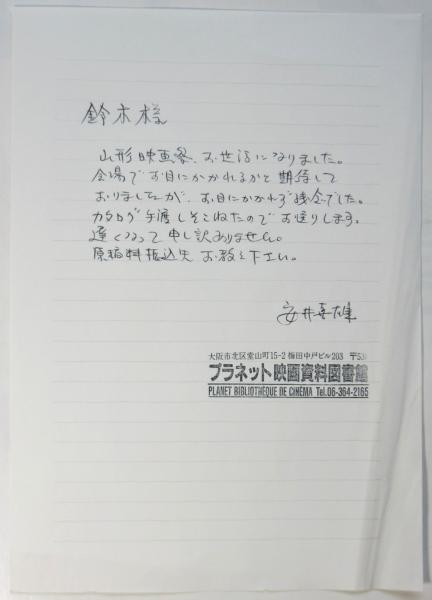 鈴木様
山形映画祭、お世話になりました。
会場でお目にかかれるかと期待して
おりましたが、お目にかかれず残念でした。
カタログ手渡しそこねたのでお送りします。
遅くなって申し訳ありません。
原稿料振込先お教え下さい。
安井喜雄
大阪市北区堂山町15-2 梅田中戸ビル203 〒53
プラネット映画資料図書館
PLANET BIBLIOTHEQUE DE CINEMA Tel.06-364-2165